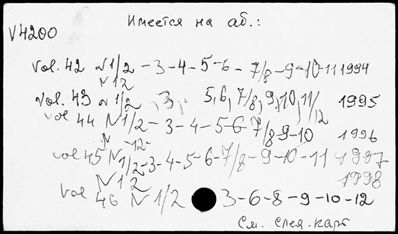 Имеется на аб.:
V4200
vol. 42 N 1/2 - 3 - 4 - 5 - 6 - 7/8 - 9 - 10 - 11 1994
N 12
vol. 43 N 1/2, 3, 5, 6, 7/8, 9, 10, 11/12 1995
vol 44 N 1/2 - 3 - 4 - 5 - 6 - 7/8 - 9 - 10 1996
N -12-
vol 45 N 1/2 - 3 - 4 - 5 - 6 - 7/8 - 9 - 10 - 11 1997
N 12 1998
vol 46 N 1/2 3 - 6 - 8 - 9 - 10 - 12
См. след. карт